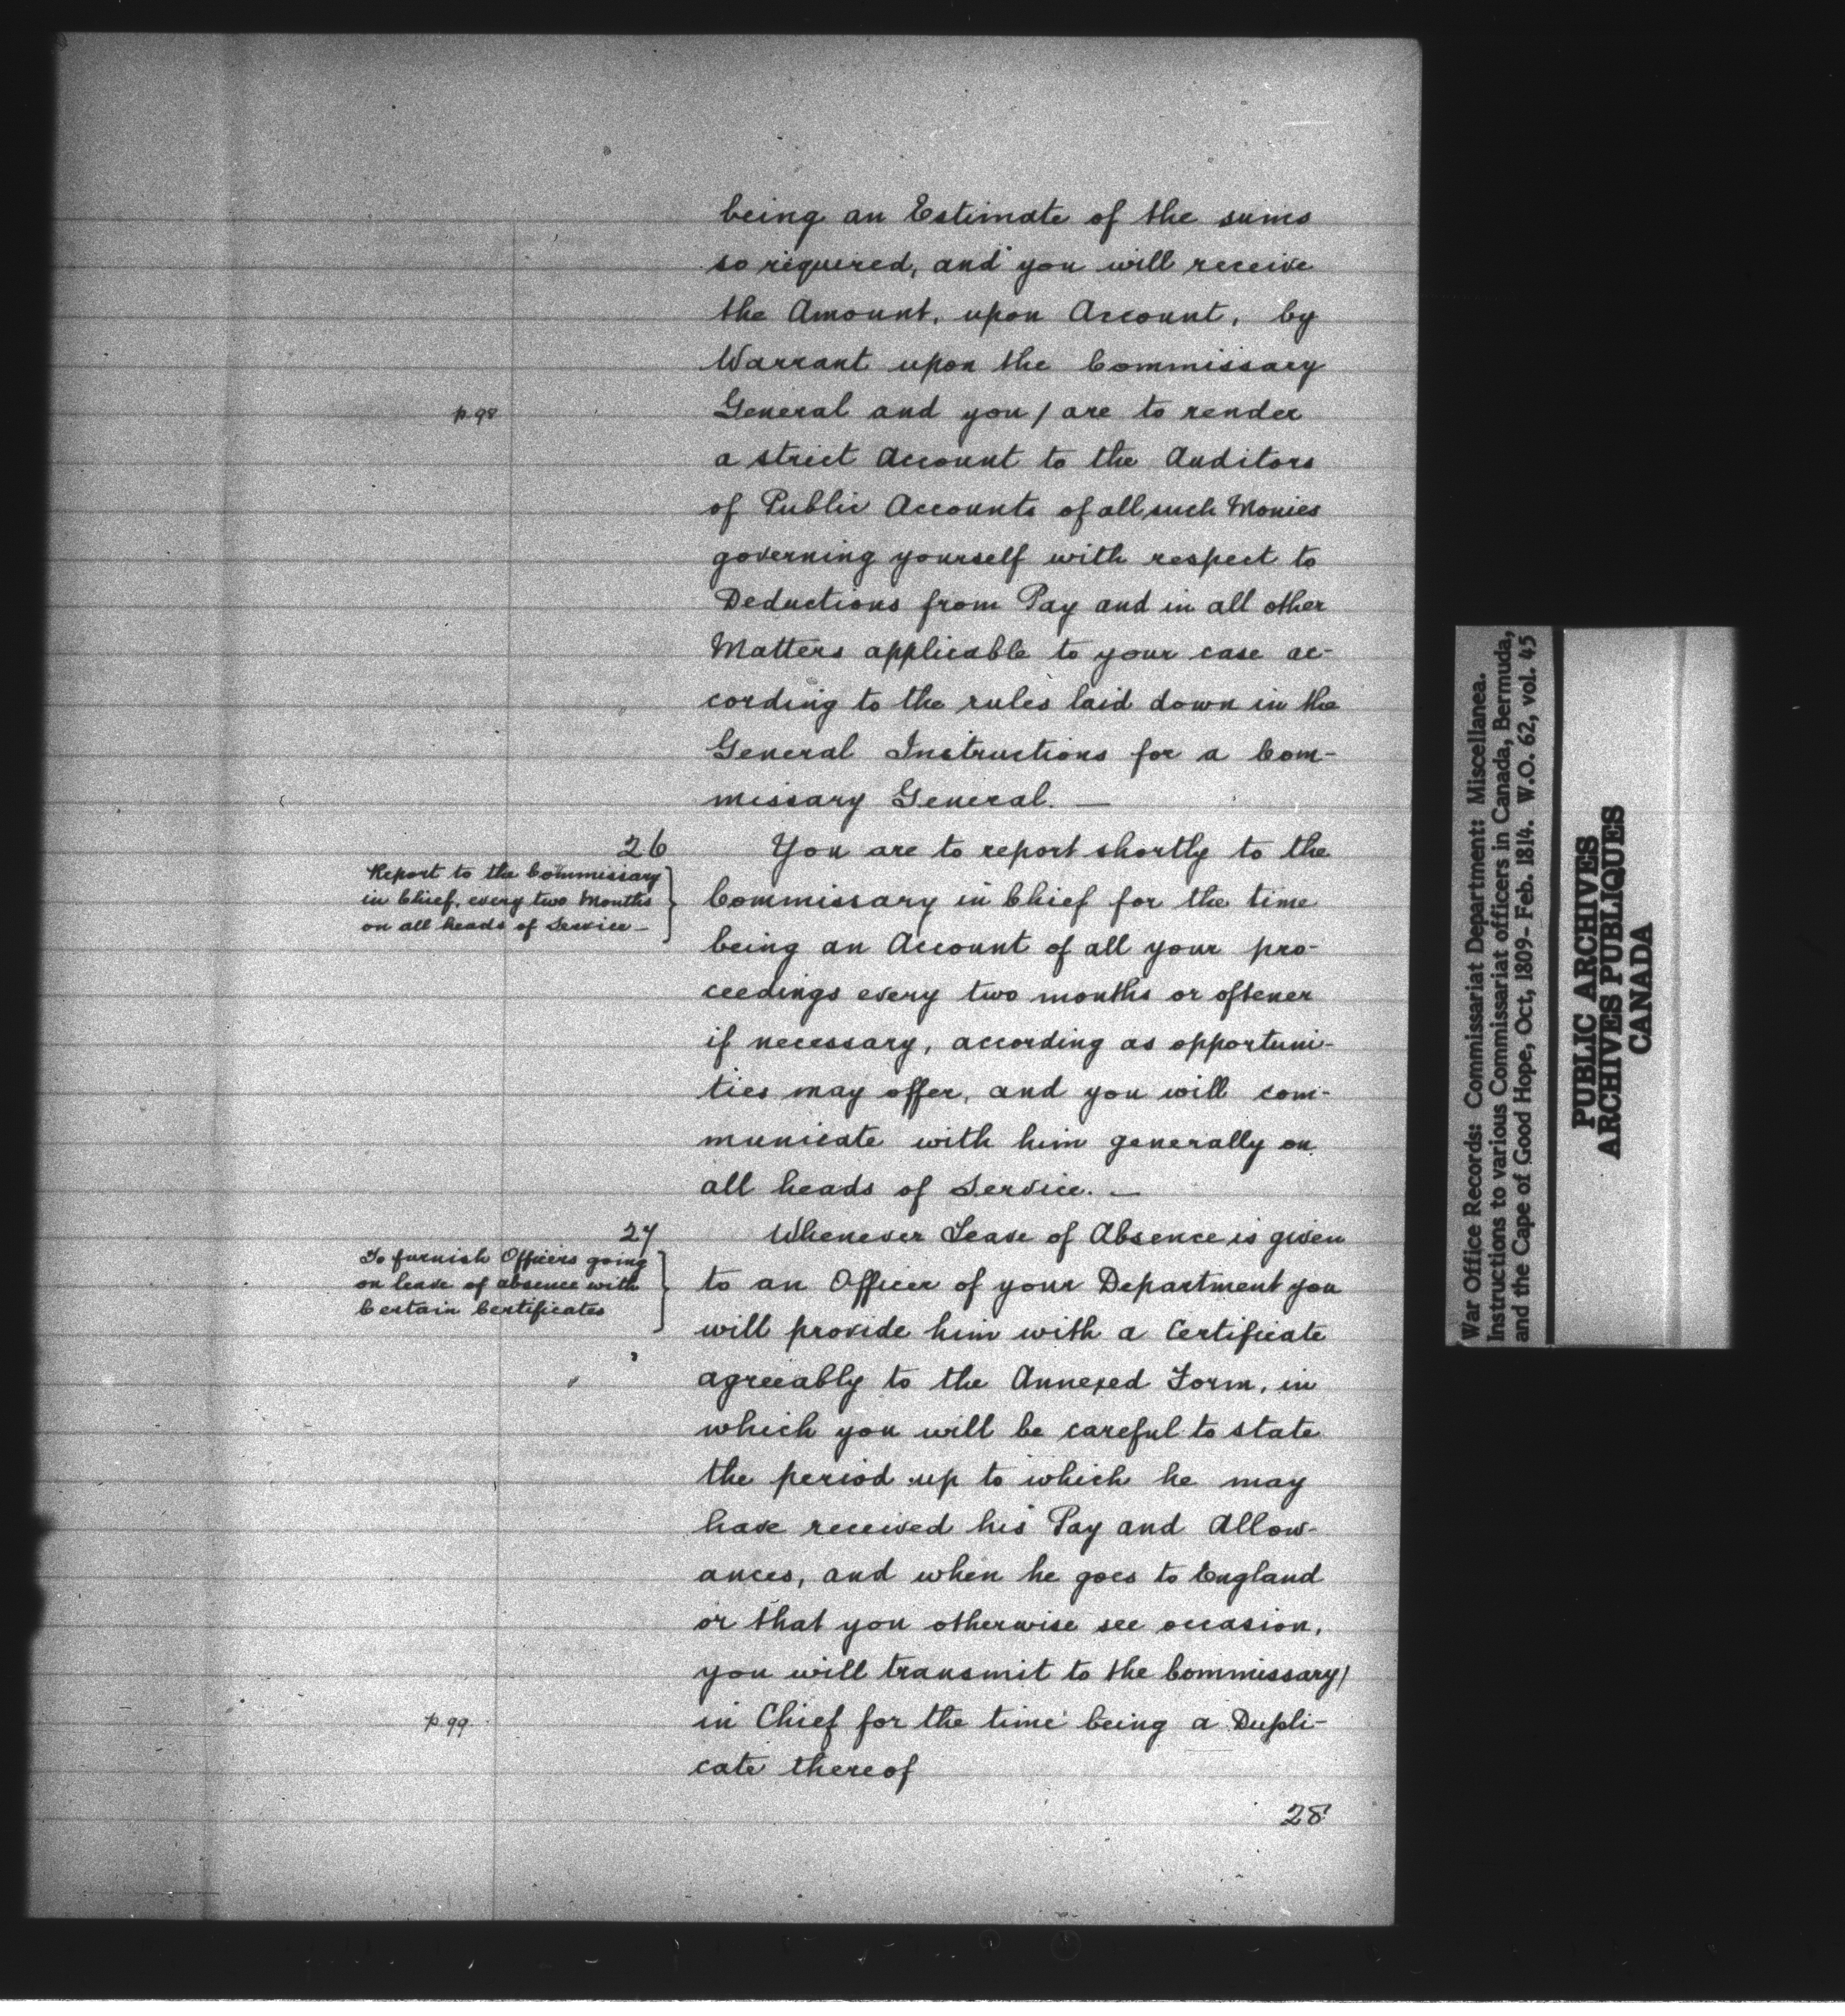 being an Estimate of the sums
so required, and you will receive
the Amount, upon Account, by
Warrant upon the Commissary
p.98
General and you / are to render
a strict Account to the Auditors
of Public Accounts of all such Monies
governing yourself with respect to
Deductions from Pay and in all other
Matters applicable to your case ac-
cording to the rules laid down in the
General Instructions for a Com-
missary General. —
26
Report to the Commissary
in Chief, every two Months
on all heads of Service —
You are to report shortly to the
Commissary in Chief for the time
being an Account of all your pro-
ceedings every two months or oftener
if necessary, according as opportuni-
ties may offer, and you will com-
municate with him generally on
all heads of Service. —
27
To furnish Officers going
on leave of absence with
Certain Certificates
Whenever Leave of Absence is given
to an Officer of your Department you
will provide him with a Certificate
agreeably to the Annexed Form, in
which you will be careful to state
the period up to which he may
have received his Pay and Allow-
ances, and when he goes to England
or that you otherwise see occasion,
you will transmit to the Commissary/
p.99
in Chief for the time being a Dupli-
cate thereof
28
War Office Records: Commissariat Department: Miscellanea.
Instructions to various Commissariat officers in Canada, Bermuda,
and the Cape of Good Hope, Oct, 1809- Feb. 1814. W.O. 62, vol. 45
PUBLIC ARCHIVES
ARCHIVES PUBLIQUES
CANADA